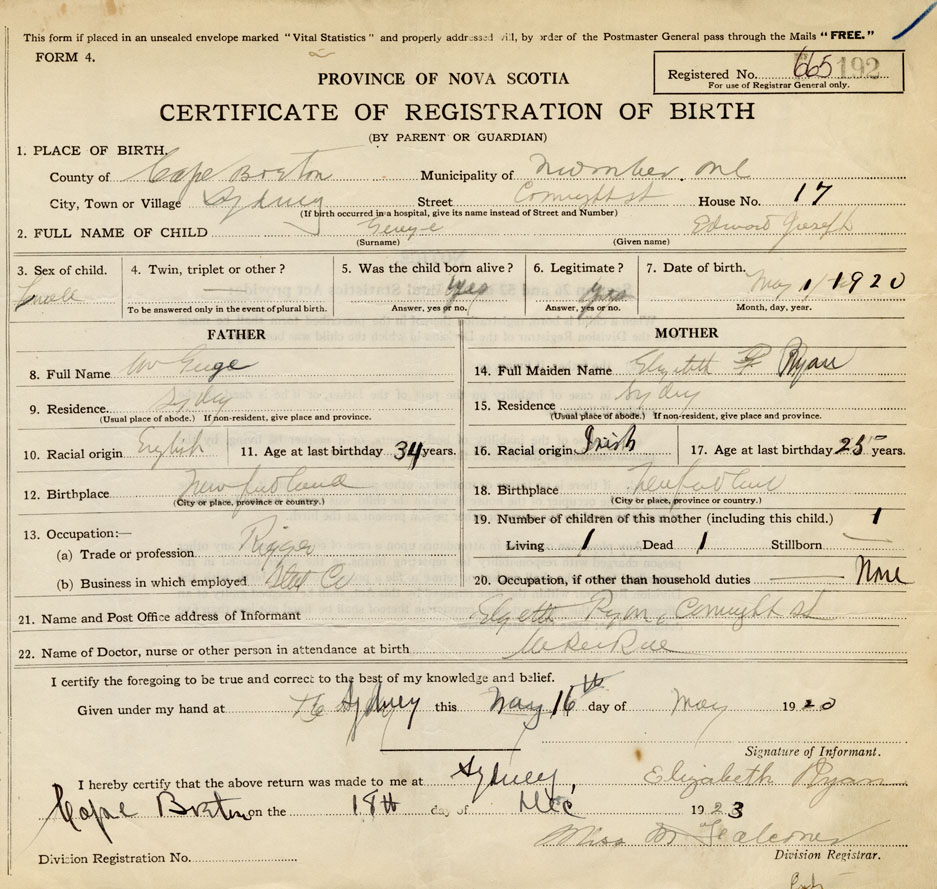 This form if placed in an unsealed envelope marked "Vital Statistics" and properly addressed will, by order of the Postmaster General pass through the Mails "FREE."
FORM 4.
PROVINCE OF NOVA SCOTIA
Registered No. 665 192
For use of Registrar General only.
CERTIFICATE OF REGISTRATION OF BIRTH
(BY PARENT OR GUARDIAN)
1. PLACE OF BIRTH.
County of Cape Breton Municipality of Number one
City, Town or Village Sydney Street Connught st House No. 17
(If birth occurred in a hospital, give its name instead of Street and Number)
2. FULL NAME OF CHILD George Edward Joseph
(Surname) (Given name)
3. Sex of child. 4. Twin, triplet or other? 5. Was the child born alive? 6. Legitimate? 7. Date of birth.
yes yes May 1 1920
To be answered only in the event of plural birth. Answer, yes or no. Answer, yes or no. Month, day, year.
FATHER MOTHER
8. Full Name George
14. Full Maiden Name Elizabeth Ryan
9. Residence. Sydney
15. Residence. Sydney
(Usual place of abode.) If non-resident, give place and province.
(Usual place of abode.) If non-resident, give place and province.
10. Racial origin English 11. Age at last birthday 34 years.
16. Racial origin Irish 17. Age at last birthday 25 years.
12. Birthplace Newfoundland
(City or place, province or country.)
18. Birthplace
(City or place, province or country.)
13. Occupation:—
(a) Trade or profession Rigger
(b) Business in which employed Steel Co
19. Number of children of this mother (including this child.) 1
Living 1 Dead 1 Stillborn
20. Occupation, if other than household duties None
21. Name and Post Office address of Informant Ryan, Connught st
22. Name of Doctor, nurse or other person in attendance at birth
I certify the foregoing to be true and correct to the best of my knowledge and belief.
Given under my hand at Sydney this May 16th day of May 1920
Signature of Informant.
I hereby certify that the above return was made to me at Sydney, Elizabeth Ryan
Cape Breton on the 18th day of Dec 1923
Miss M Falconer
Division Registration No.
Division Registrar.